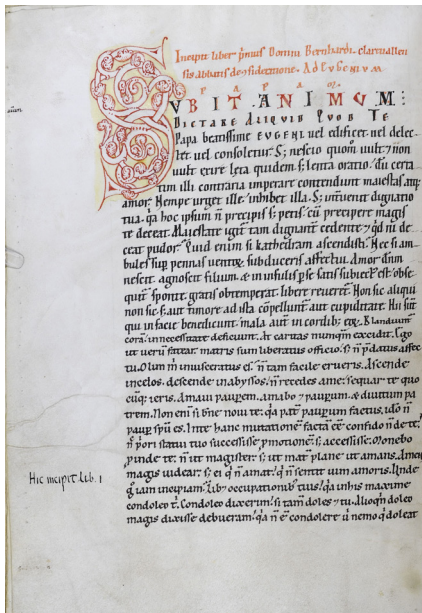 Incipit liber p̄mus Domni Bernhardi clarevallen
sis abbatis de ꝯsideratione. AD EVGENIVM
PAPAM
SVBIT ANIMVM
DICTARE ALIQVID QVOD TE
Papa beatissime EUGENI. uel edificet. uel delec
tet. uel consoletur. S; nescio quom̄ uult ⁊ non
uult exire leta quidem. s; lenta oratio. dū certa
tim illi contraria imperare contendunt maiestas atq;
amor. Nempe urget ille. inhibet illa. S; int̄uenit dignatio
tua. qͣ hoc ipsum n̄ precipis s; petis. cū precipere magis
te deceat. Maiestate igit̄ tam dignant̄ cedente. qͥdni ce
deat pudor. Quid enim si kathedram ascendisti. Nec si am
bules sup pennas uentoꝝ. subduceris affectui. Amor dn̄m
nescit. agnoscit filium. ⁊ in infulis. p se satis subiect' est. obse
quit' sponte. gratis obtemperat. libere reueret̄. Non sic aliqui
non sic. s; aut timore ad ista cōpellunt̄. aut cupiditate. Hii sunt
qui in facie benedicunt. mala aut̄ in cordib; eoꝝ. Blandiunt̄
corā. in necessitate deficiunt. At caritas nunquā excidit. Ego
ut uerū fatear matris sum liberatus officio. s; n̄ p̄datus affec
tu. Olim m̄ inuiscerat' es. n̄ tam facile erueris. Ascende
in celos. descende in abyssos. n̄ recedes a me. sequar te quo
cūq; ieris. Amaui paupem. amabo ⁊ paupum ⁊ diuitum pa
trem. Non eni si bn̄e noui te. qͣ pat̄ paupum factus. ido n̄
paup sp̄u es. In te hanc mutationē factā eē confido n̄ de te.
n̄ pori statui tuo successisse p̄motionē s; accessisse. Monebo
pinde te. n̄ ut magister s; ut mat̄. plane ut amans. Amens
magis uidear. s; ei qͥ n̄ amat. qͥ n̄ sentit uim amoris. Unde
gͦ iam incipiam. Lib; occupationib; tuis. qͣ in his maxime
condoleo t̄. Condoleo dixerim. si tam̄ doles ⁊ tu. Alioqn̄ doleo
magis dixisse debueram. qͣ n̄ ē condolere u nemo qͥ doleat
Hic incipit Lib. I